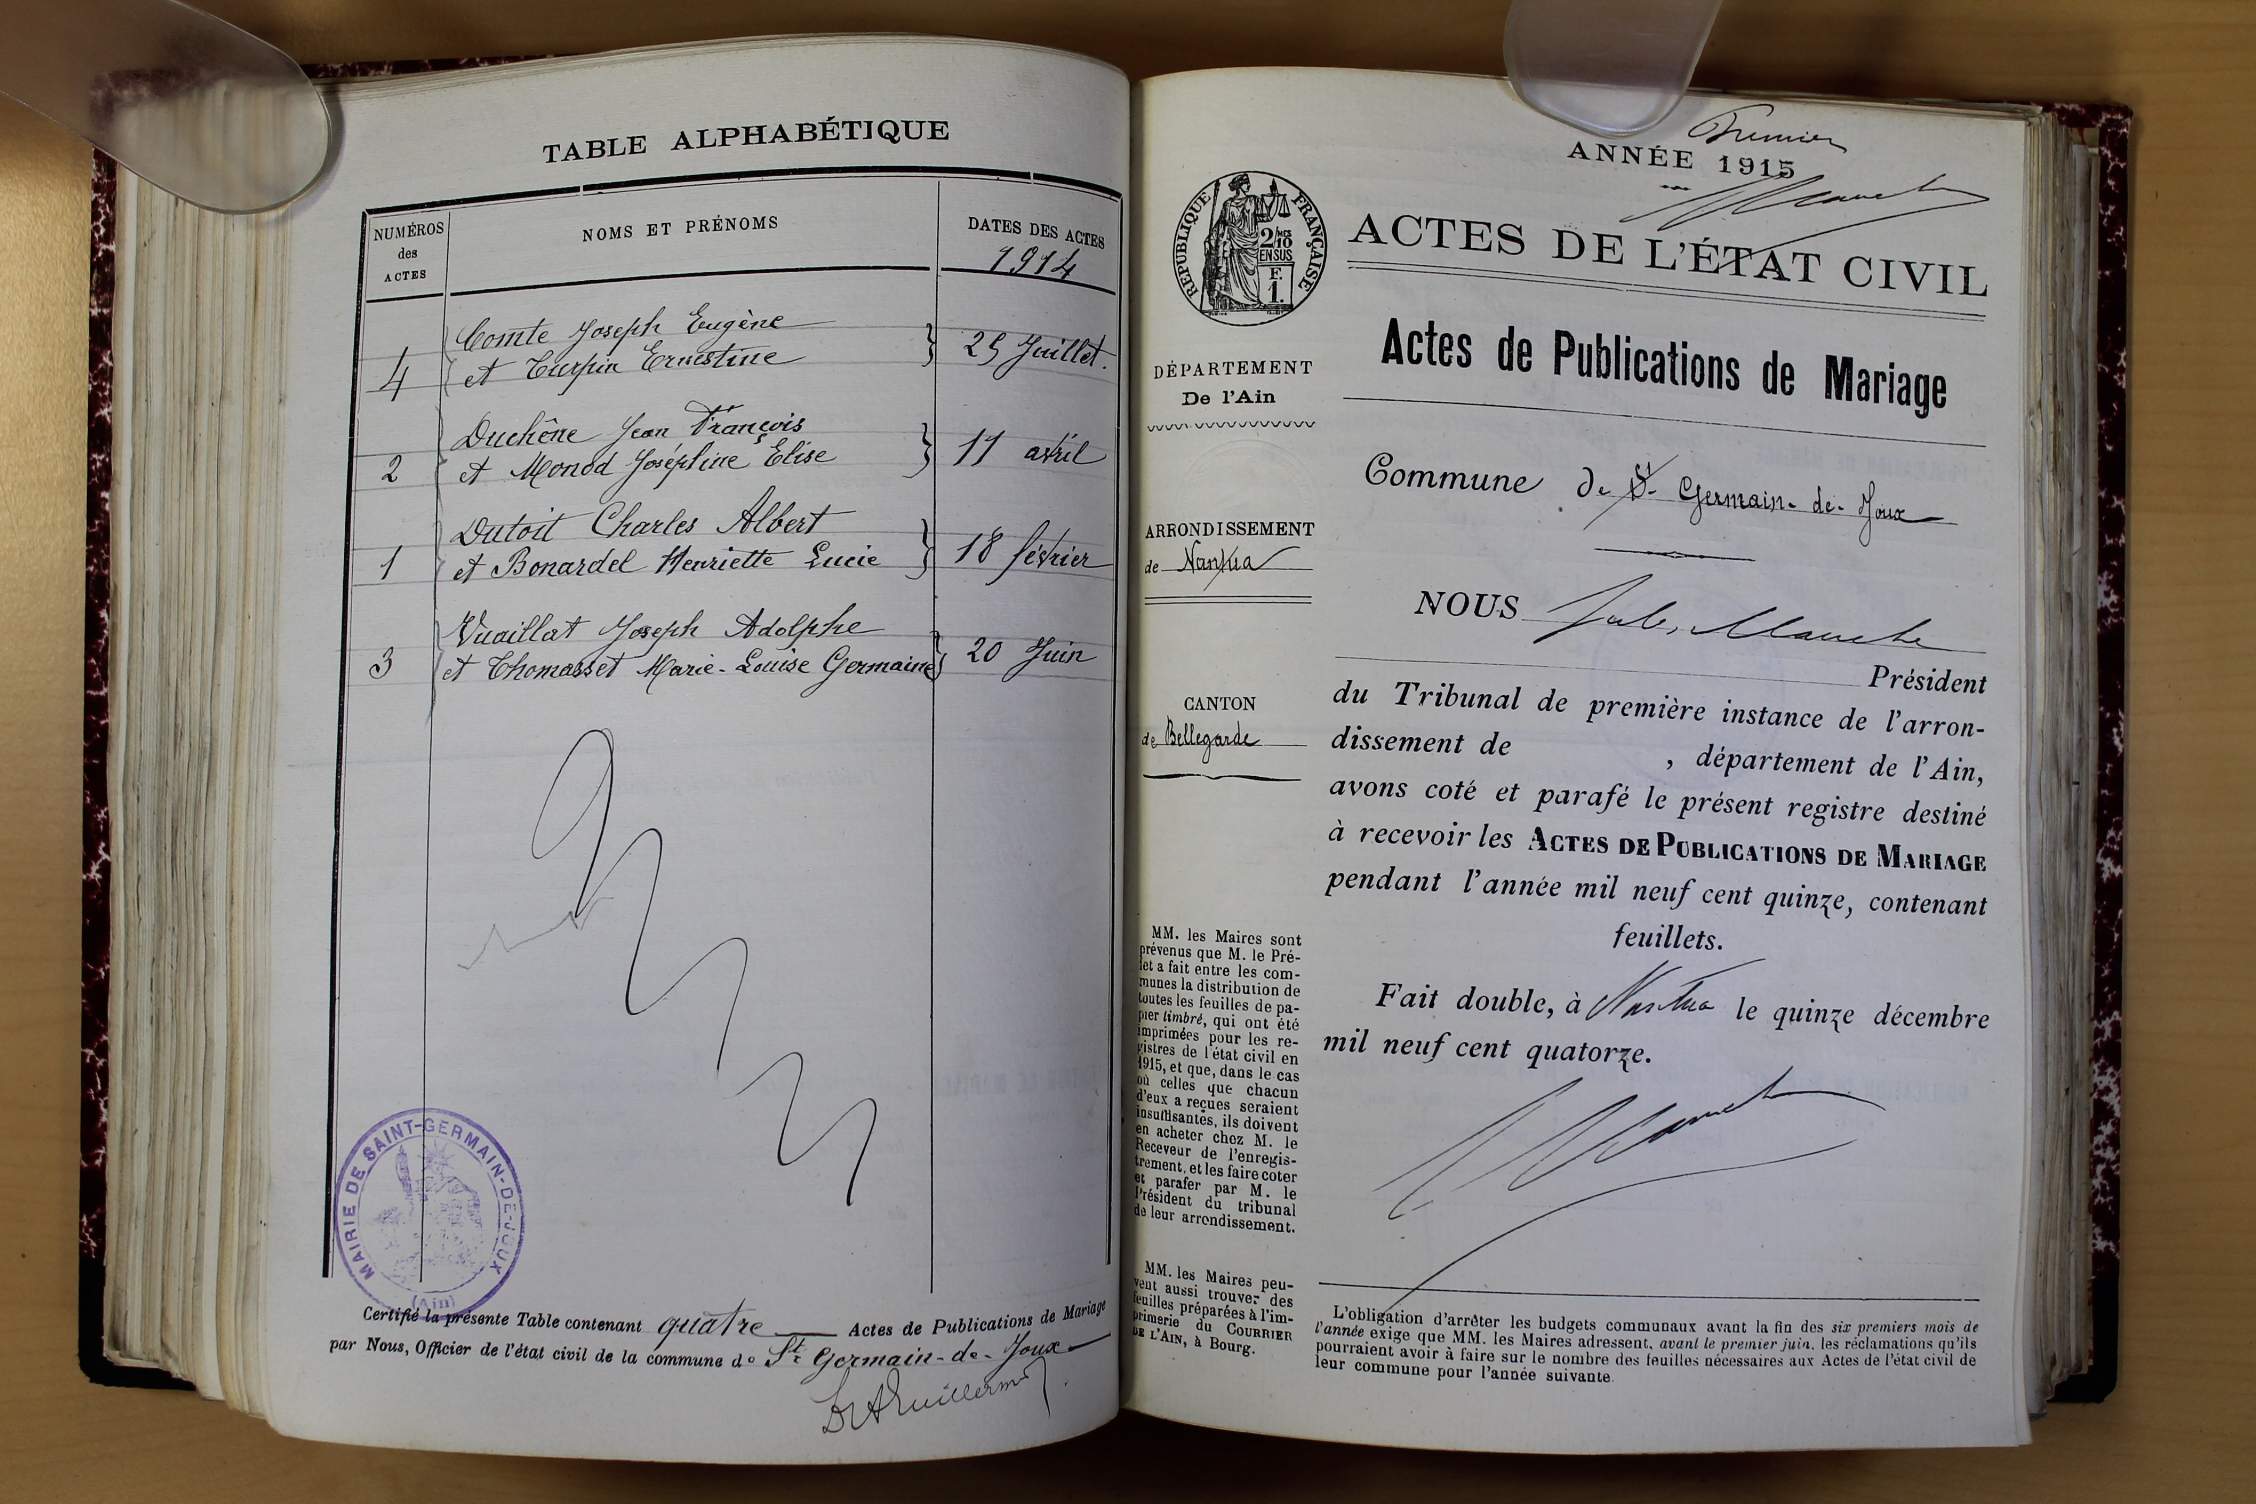 TABLE ALPHABÉTIQUE
NUMÉROS
des
ACTES
NOMS ET PRÉNOMS
DATES DES ACTES
1914
4
Comte Joseph Eugène
et Turpin Ernestine
25 Juillet.
2
Duchêne Jean François
et Monod Joséphine Elise
11 avril
1
Dutoit Charles Albert
et Bonardel Henriette Lucie
18 février
3
Vuaillat Joseph Adolphe
et Thomasset Marie-Louise Germaine
20 Juin
MAIRIE DE SAINT-GERMAIN-DE-JOUX
(Ain)
Certifié la présente Table contenant quatre Actes de Publications de Mariage
par Nous, Officier de l'état civil de la commune de St Germain-de-Joux
Premier
ANNÉE 1915
RÉPUBLIQUE FRANÇAISE
2/10
EN SUS
F.
1.
ACTES DE L'ÉTAT CIVIL
Actes de Publications de Mariage
DÉPARTEMENT
De l'Ain
Commune de St-Germain-de-Joux
ARRONDISSEMENT
de Nantua
CANTON
de Bellegarde
NOUS Jules
Président
du Tribunal de première instance de l'arron-
dissement de , département de l'Ain,
avons coté et parafé le présent registre destiné
à recevoir les ACTES DE PUBLICATIONS DE MARIAGE
pendant l'année mil neuf cent quinze, contenant
feuillets.
Fait double, à Nantua le quinze décembre
mil neuf cent quatorze.
MM. les Maires sont
prévenus que M. le Pré-
fet a fait entre les com-
munes la distribution de
toutes les feuilles de pa-
pier timbré, qui ont été
imprimées pour les re-
gistres de l'état civil en
1915, et que, dans le cas
où celles que chacun
d'eux a reçues seraient
insuffisantes, ils doivent
en acheter chez M. le
Receveur de l'enregis-
trement, et les faire coter
et parafer par M. le
Président du tribunal
de leur arrondissement.
MM. les Maires peu-
vent aussi trouver des
feuilles préparées à l'im-
primerie du COURRIER
DE L'AIN, à Bourg.
L'obligation d'arrêter les budgets communaux avant la fin des six premiers mois de
l'année exige que MM. les Maires adressent, avant le premier juin, les réclamations qu'ils
pourraient avoir à faire sur le nombre des feuilles nécessaires aux Actes de l'état civil de
leur commune pour l'année suivante.